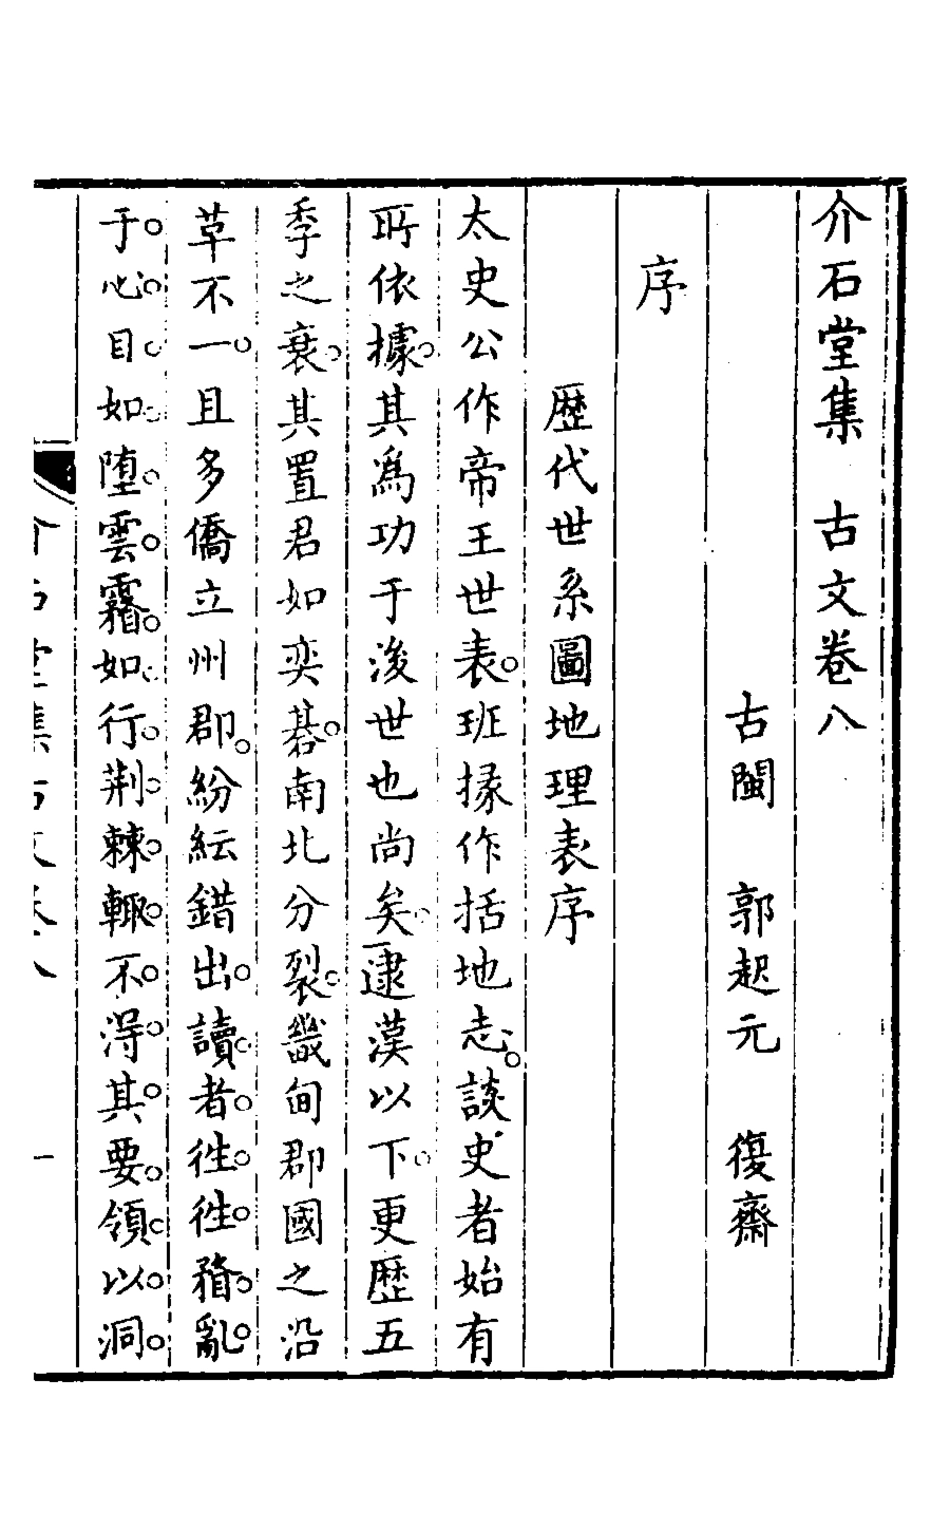 介石堂集　古文卷八
古閩　郭起元　復齋
序
歷代世系圖地理表序
太史公作帝王世表。班掾作括地志。談史者始有
所依據。其爲功于後世也尚矣。逮漢以下。更歷五
季之衰。其置君如奕碁。南北分裂。畿甸郡國之沿
革不一。且多僑立州郡。紛紜錯出。讀者徃徃瞀亂。
于心目。如墮雲霧。如行荆棘。輙不淂其要領。以洞
介石堂集古文卷八　一